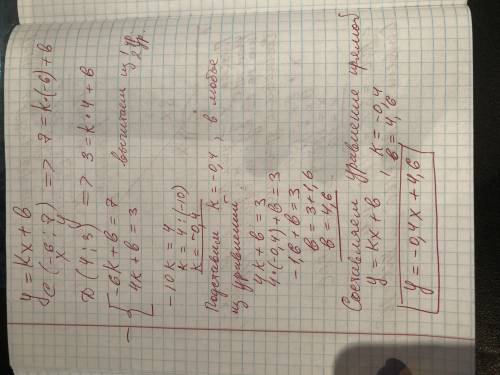 y = kx + в
C (-6; 7) => 7 = k·(-6) + в
x y
D (4; 3) => 3 = k·4 + в
- { -6k + в = 7
4k + в = 3
вычитаем из 1 ур. 2 ур.
-10k = 4
k = 4 : (-10)
k = -0,4
Подставим k = -0,4, в любое
из уравнений
4k + в = 3
4·(-0,4) + в = 3
-1,6 + в = 3
в = 3 + 1,6
в = 4,6
Составляем уравнение прямой
y = kx + в, k = -0,4
в = 4,6
y = -0,4x + 4,6